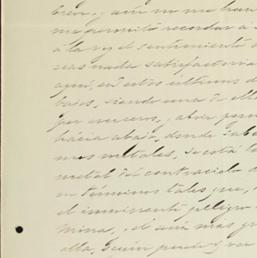 breve, y aun no me han
me permito recordar a
a la vez el sentimiento d
ser nada satisfactoria
aqui, en estos ultimos d
bajos, siendo una de ell
por cruceros, y abrir por
hácia abajo donde
mos metales, se está
metal del contracielo d
en términos tales que,
el inminente peligro
mina, el aun más gra
ella, segun puede ver